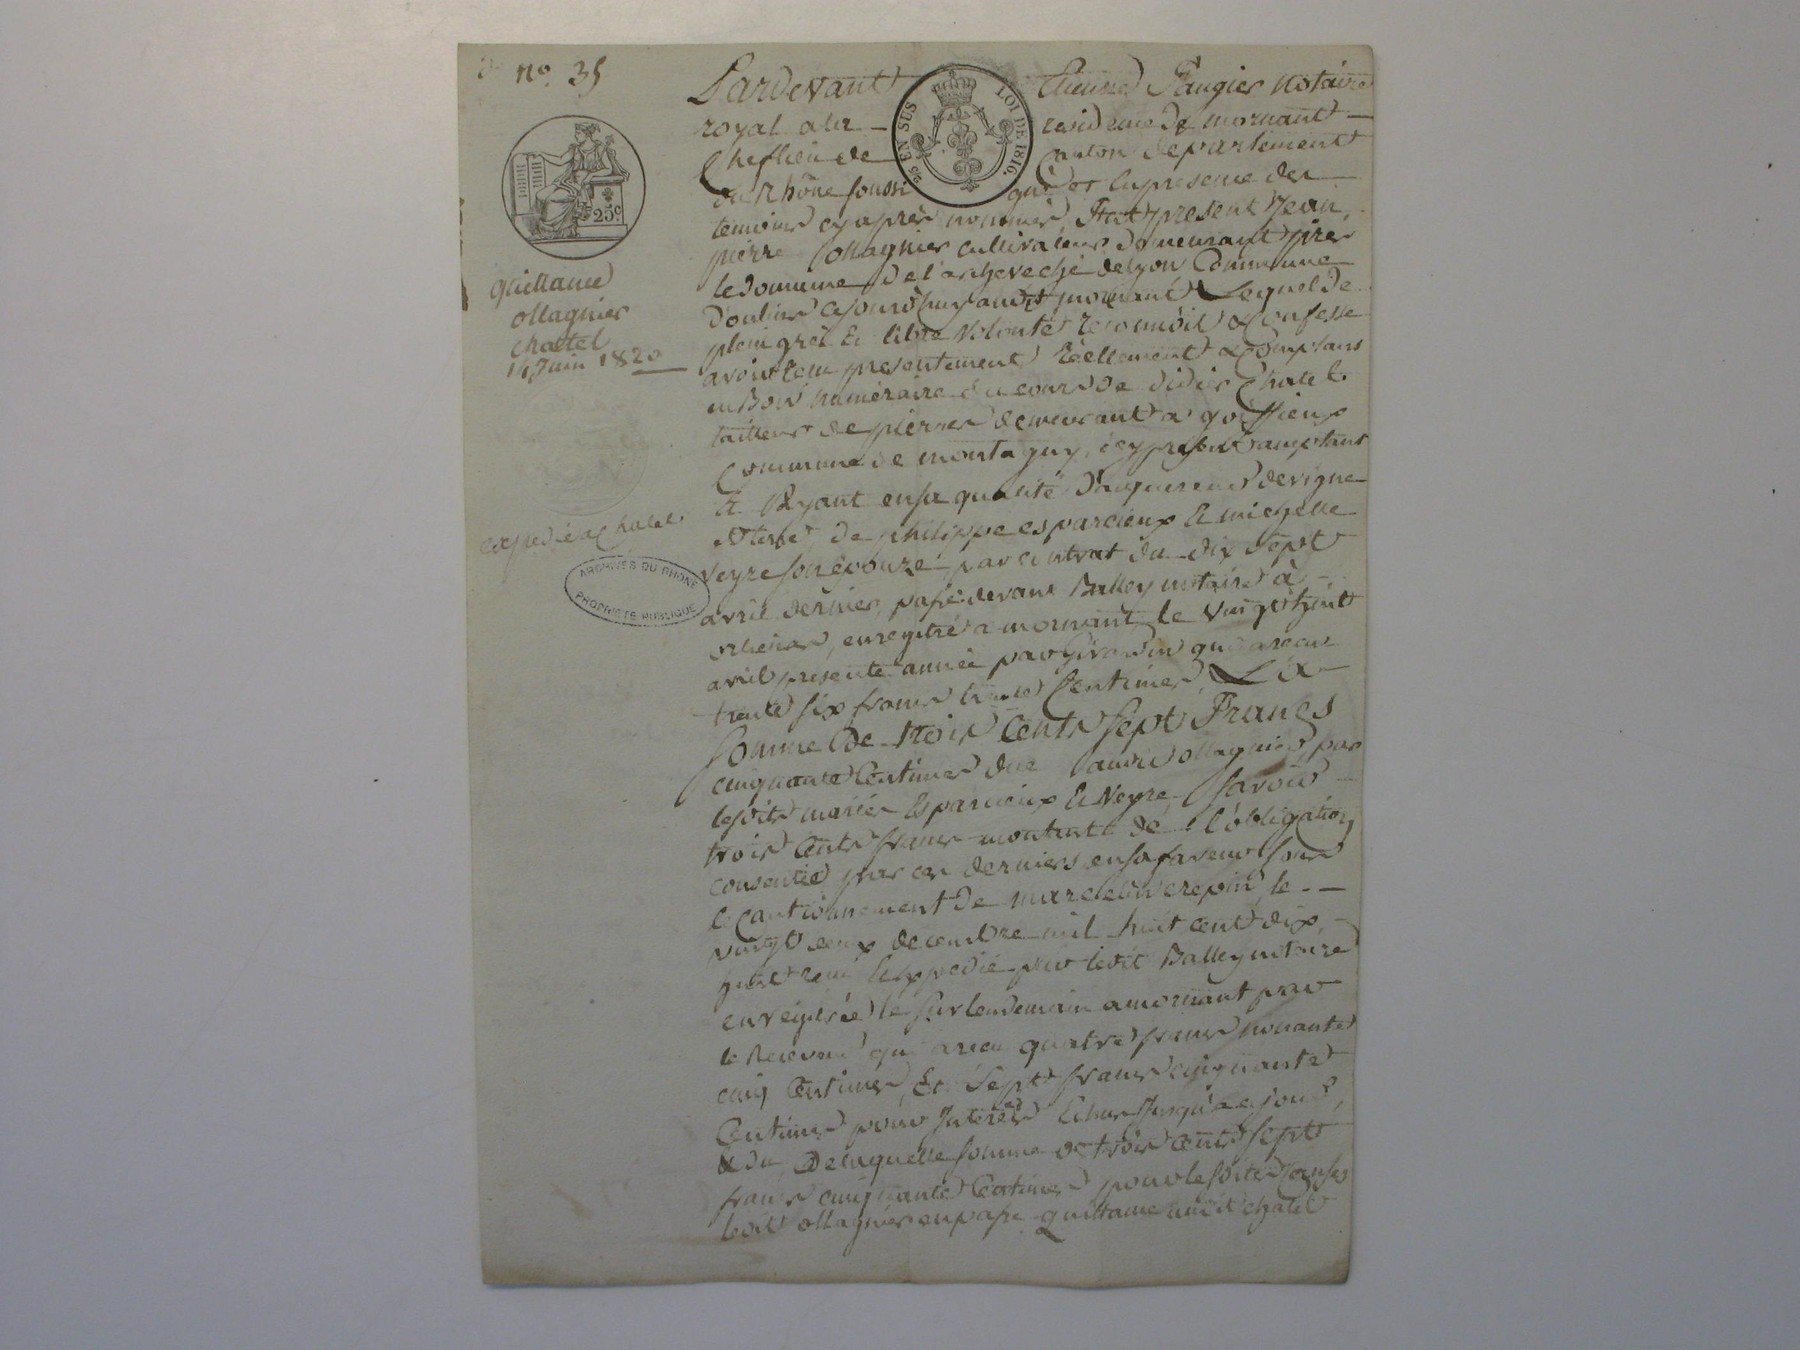 no. 35
Pardevant Etienne Faugier notaire
royal a la residence de mornant
Cheflieu de Canton departement
du Rhône soussigné et en presence des
temoins cy apres nommés, Fut present Jean
pierre ollagnier cultivateur demeurant pres
le domaine de l'archeveché de lyon Commune
d'oulins cejourd'huy audit mornant Lequel de
plein gré et libre volonté reconnoit & confesse
avoir recu presentement réellement & Comptant
en Bon numéraire du cours de didier Chatel
tailleur de pierres demeurant a goiffieux
Commune de montagny, icy present acceptant
et Payant en sa qualité d'acquereur de vigne
de philippe esparcieux et michelle
veyre son épouze par contrat du dix sept
avril dernier, passé devant Balley notaire à
orlienas, enregistré a mornant le vingt huit
avril presente année par Girardin qui a recu
trente six francs trente Centimes, La
Somme de trois Cents sept Francs
cinquante Centimes due audit ollagnier par
lesdits mariés Esparcieux et Veyre, savoir
trois Cents francs montant de l'obligation
consentie par ces derniers en sa faveur sous
le Cautionnement de marcelin crepin, le
vingt deux decembre mil huit cent dix
huit recu et expedié par ledit Balley notaire
enregistrée le surlendemain a mornant par
le Receveur qui a recu quatre francs nonante
cinq Centimes, Et Sept francs cinquante
Centimes pour Interêts échus jusqu'a ce jour,
& du De laquelle somme de trois Cents sept
francs cinquante Centimes pour lesdites Causes
ledit ollagnier en passe quittance audit chatel
2/10 EN SUS LOI DE 1816.
25c
quittance
ollagnier
chatel
14 Juin 1820
expedié a Chatel
ARCHIVES DU RHONE
PROPRIETE PUBLIQUE